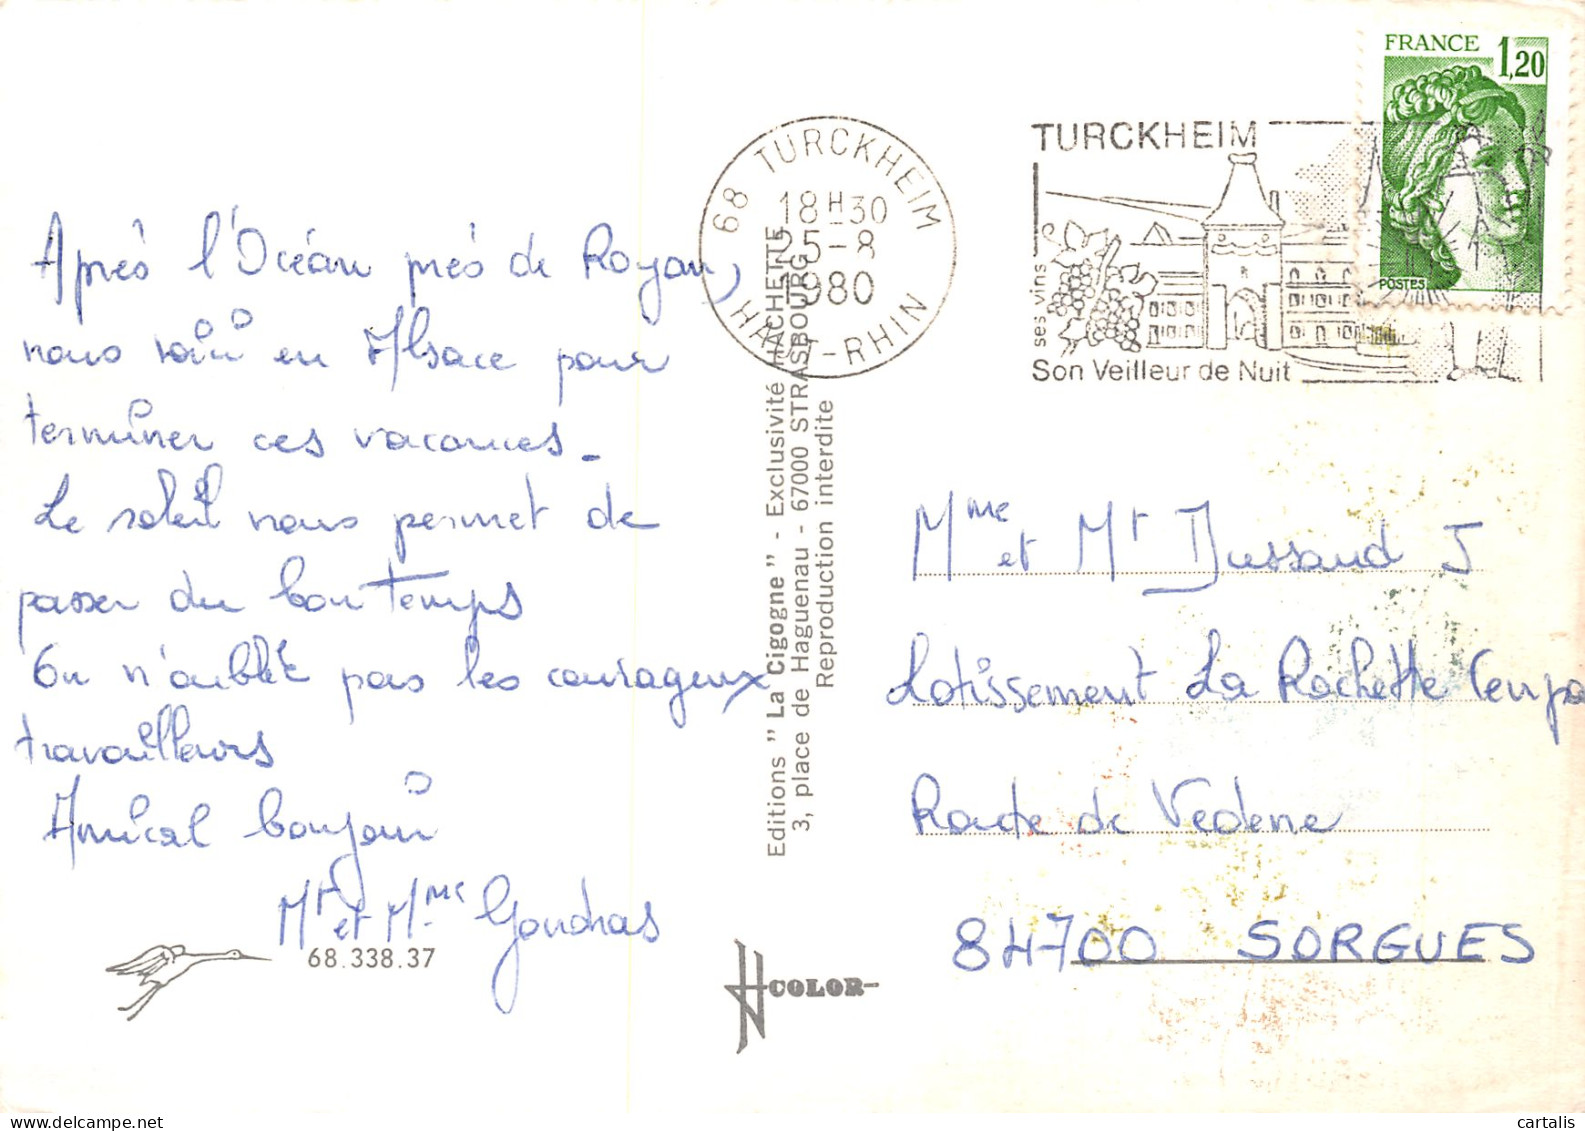 Après l'Océan près de Royan,
nous voici en Alsace pour
terminer ces vacances.
Le soleil nous permet de
passer du bon temps
On n'oublie pas les courageux
travailleurs
Amical bonjour
Mr et Mme
68.338.37
Editions " La Cigogne " - Exclusivité HACHETTE
3, place de Haguenau - 67000 STRASBOURG
Reproduction interdite
COLOR
68 TURCKHEIM
18H30
25-8
1980
HAUT-RHIN
TURCKHEIM
ses vins
Son Veilleur de Nuit
FRANCE 1,20
POSTES
Mme et Mr Dussaud J
Lotissement La Rochette
Route de Vedene
84700 SORGUES
cartalis